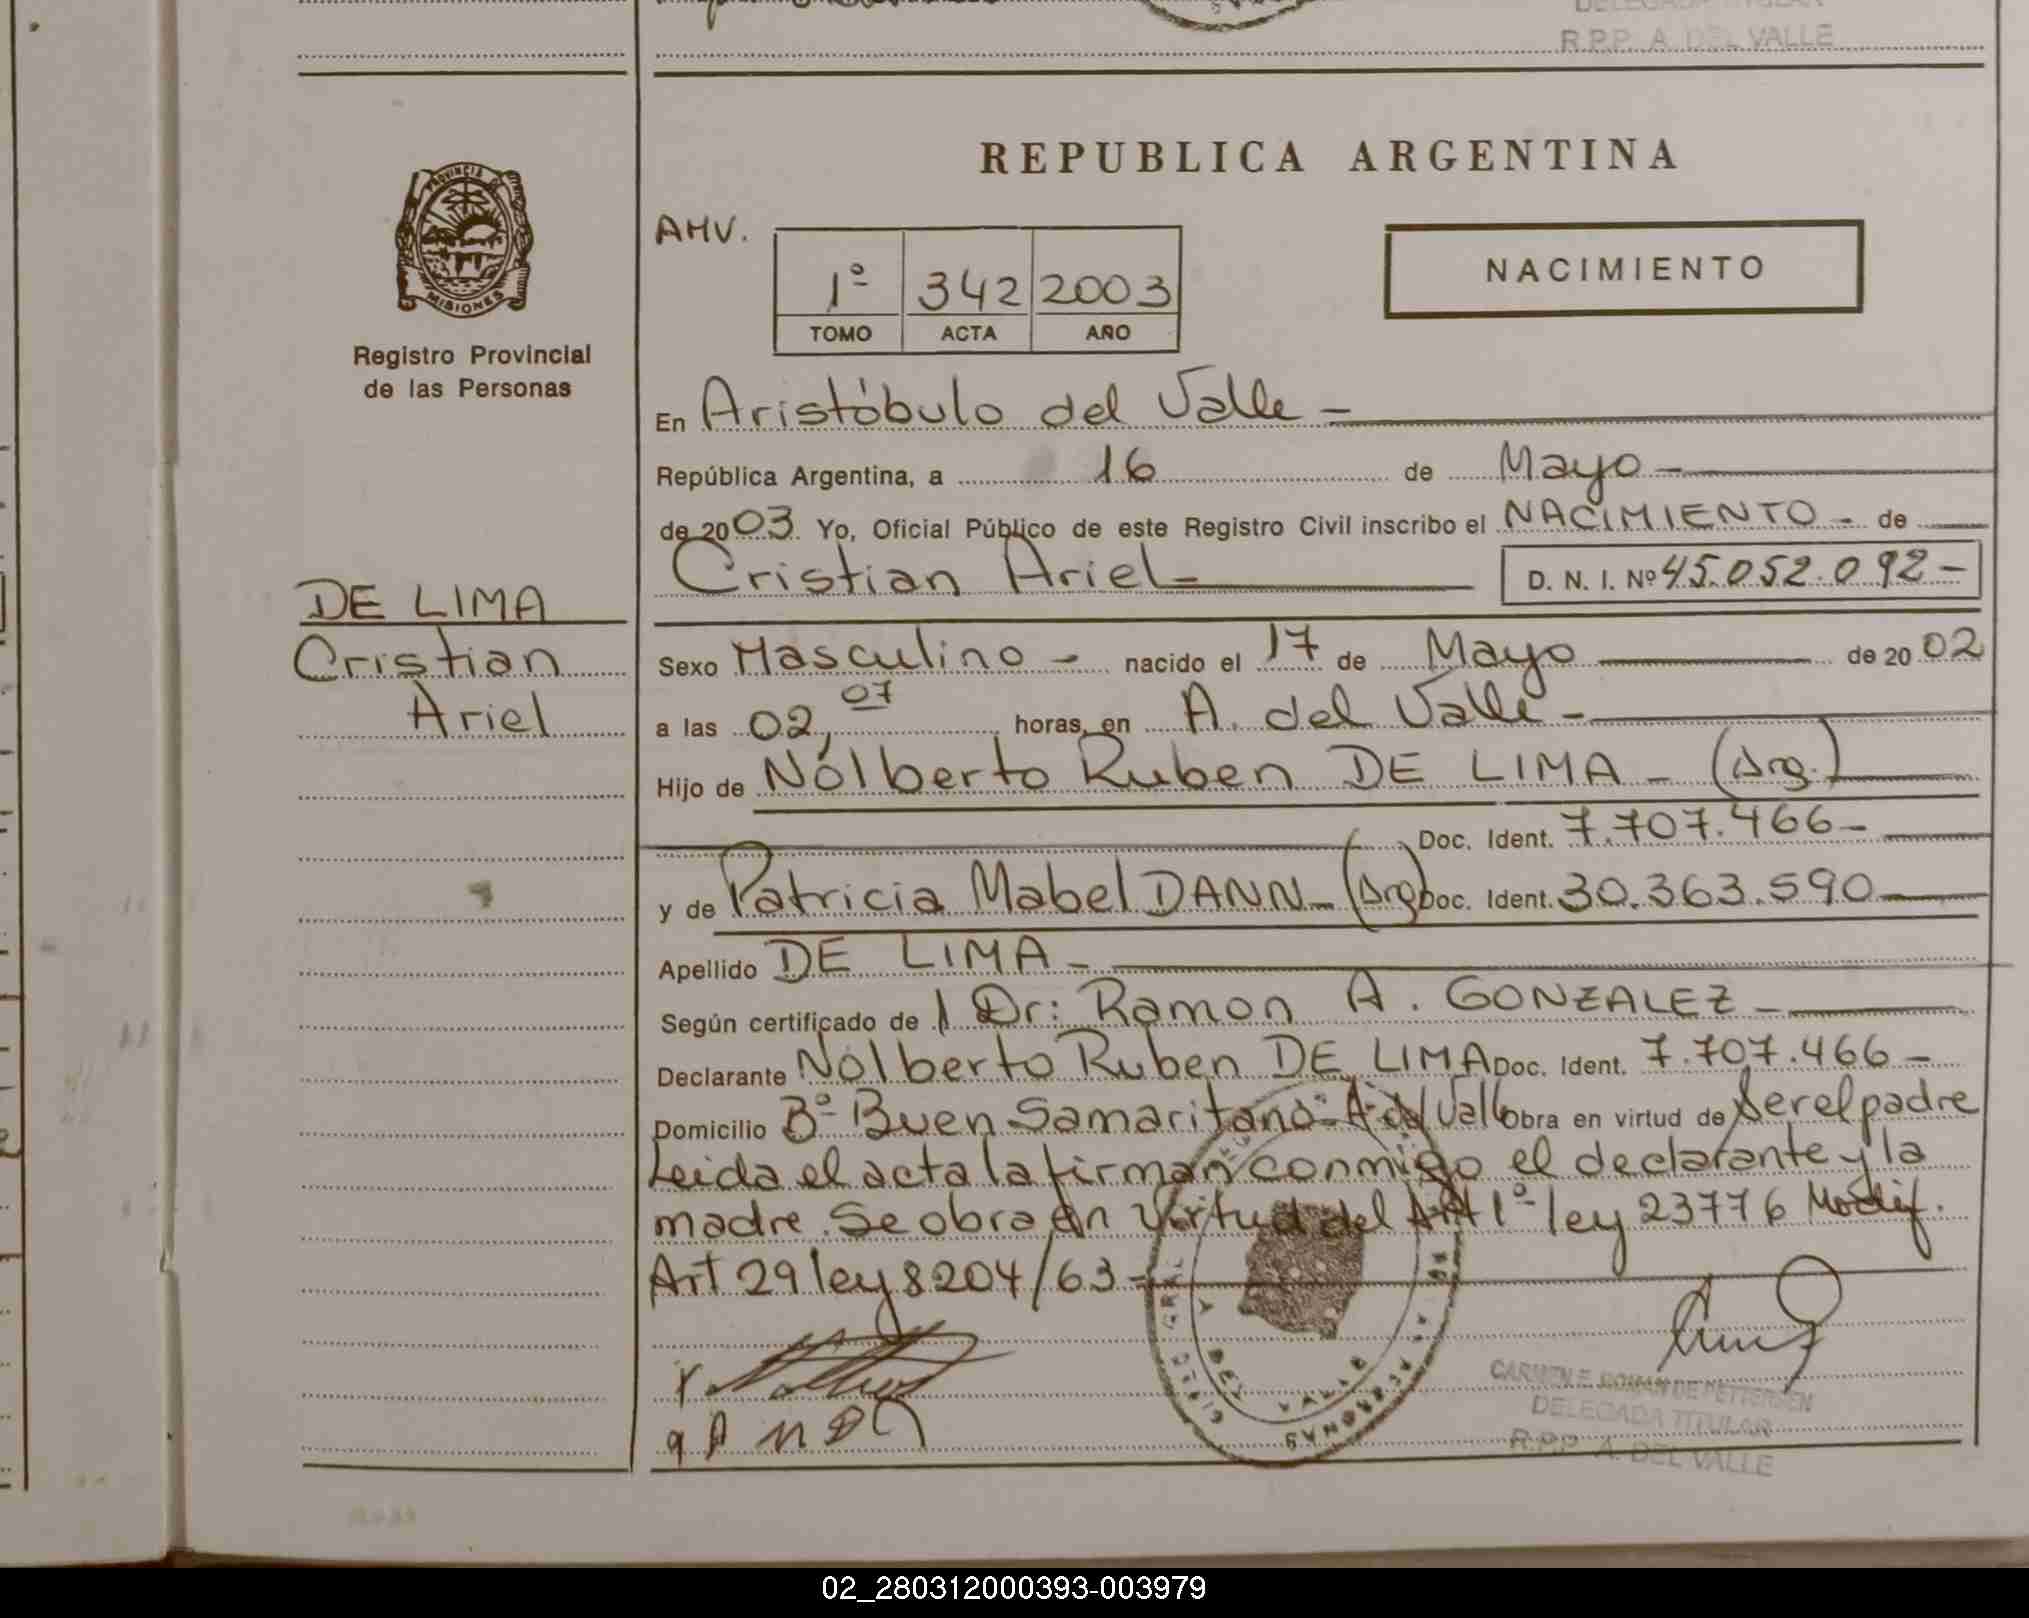 DELEGADA TITULAR
R.P.P. A. DEL VALLE
PROVINCIA DE
MISIONES
Registro Provincial
de las Personas
DE LIMA
Cristian
Ariel
REPUBLICA ARGENTINA
AMV.
1º 342 2003
TOMO ACTA AÑO
NACIMIENTO
En Aristóbulo del Valle -
República Argentina, a 16 de Mayo -
de 2003. Yo, Oficial Público de este Registro Civil inscribo el NACIMIENTO - de
Cristian Ariel -
D. N. I. Nº 45.052.092-
Sexo Masculino - nacido el 17 de Mayo de 2002
a las 02,07 horas, en A. del Valle -
Hijo de Nólberto Ruben DE LIMA - (Arg.)
Doc. Ident. 7.707.466-
y de Patricia Mabel DANN - (Arg) Doc. Ident. 30.363.590
Apellido DE LIMA -
Según certificado de Dr: Ramon A. GONZALEZ -
Declarante Nólberto Ruben DE LIMA Doc. Ident. 7.707.466 -
Domicilio Bº Buen Samaritano - A. d Valle Obra en virtud de Ser el padre
Leida el acta la firman conmigo el declarante y la
madre. Se obra en virtud del Art 1º ley 23776 Modif.
Art 29 ley 8204/63 -
CARMEN E. ROMAN DE PETTERSEN
DELEGADA TITULAR
R.P.P. A. DEL VALLE
02_280312000393-003979